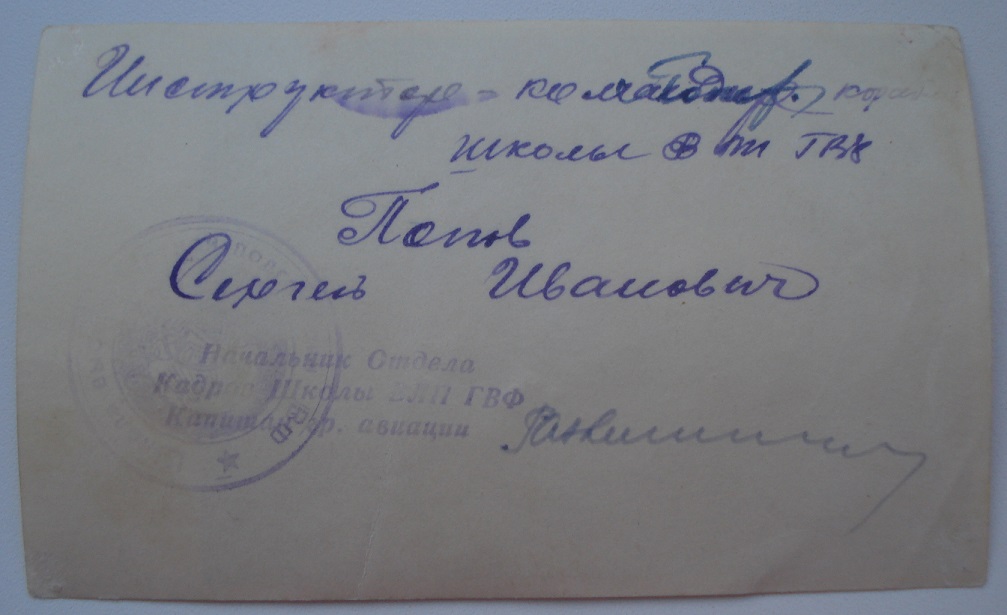 Инструктор - командир
школы ВЛП ГВФ
Попов
Сергей Иванович
Начальник Отдела
Кадров Школы ВЛП ГВФ
Капитан гр. авиации